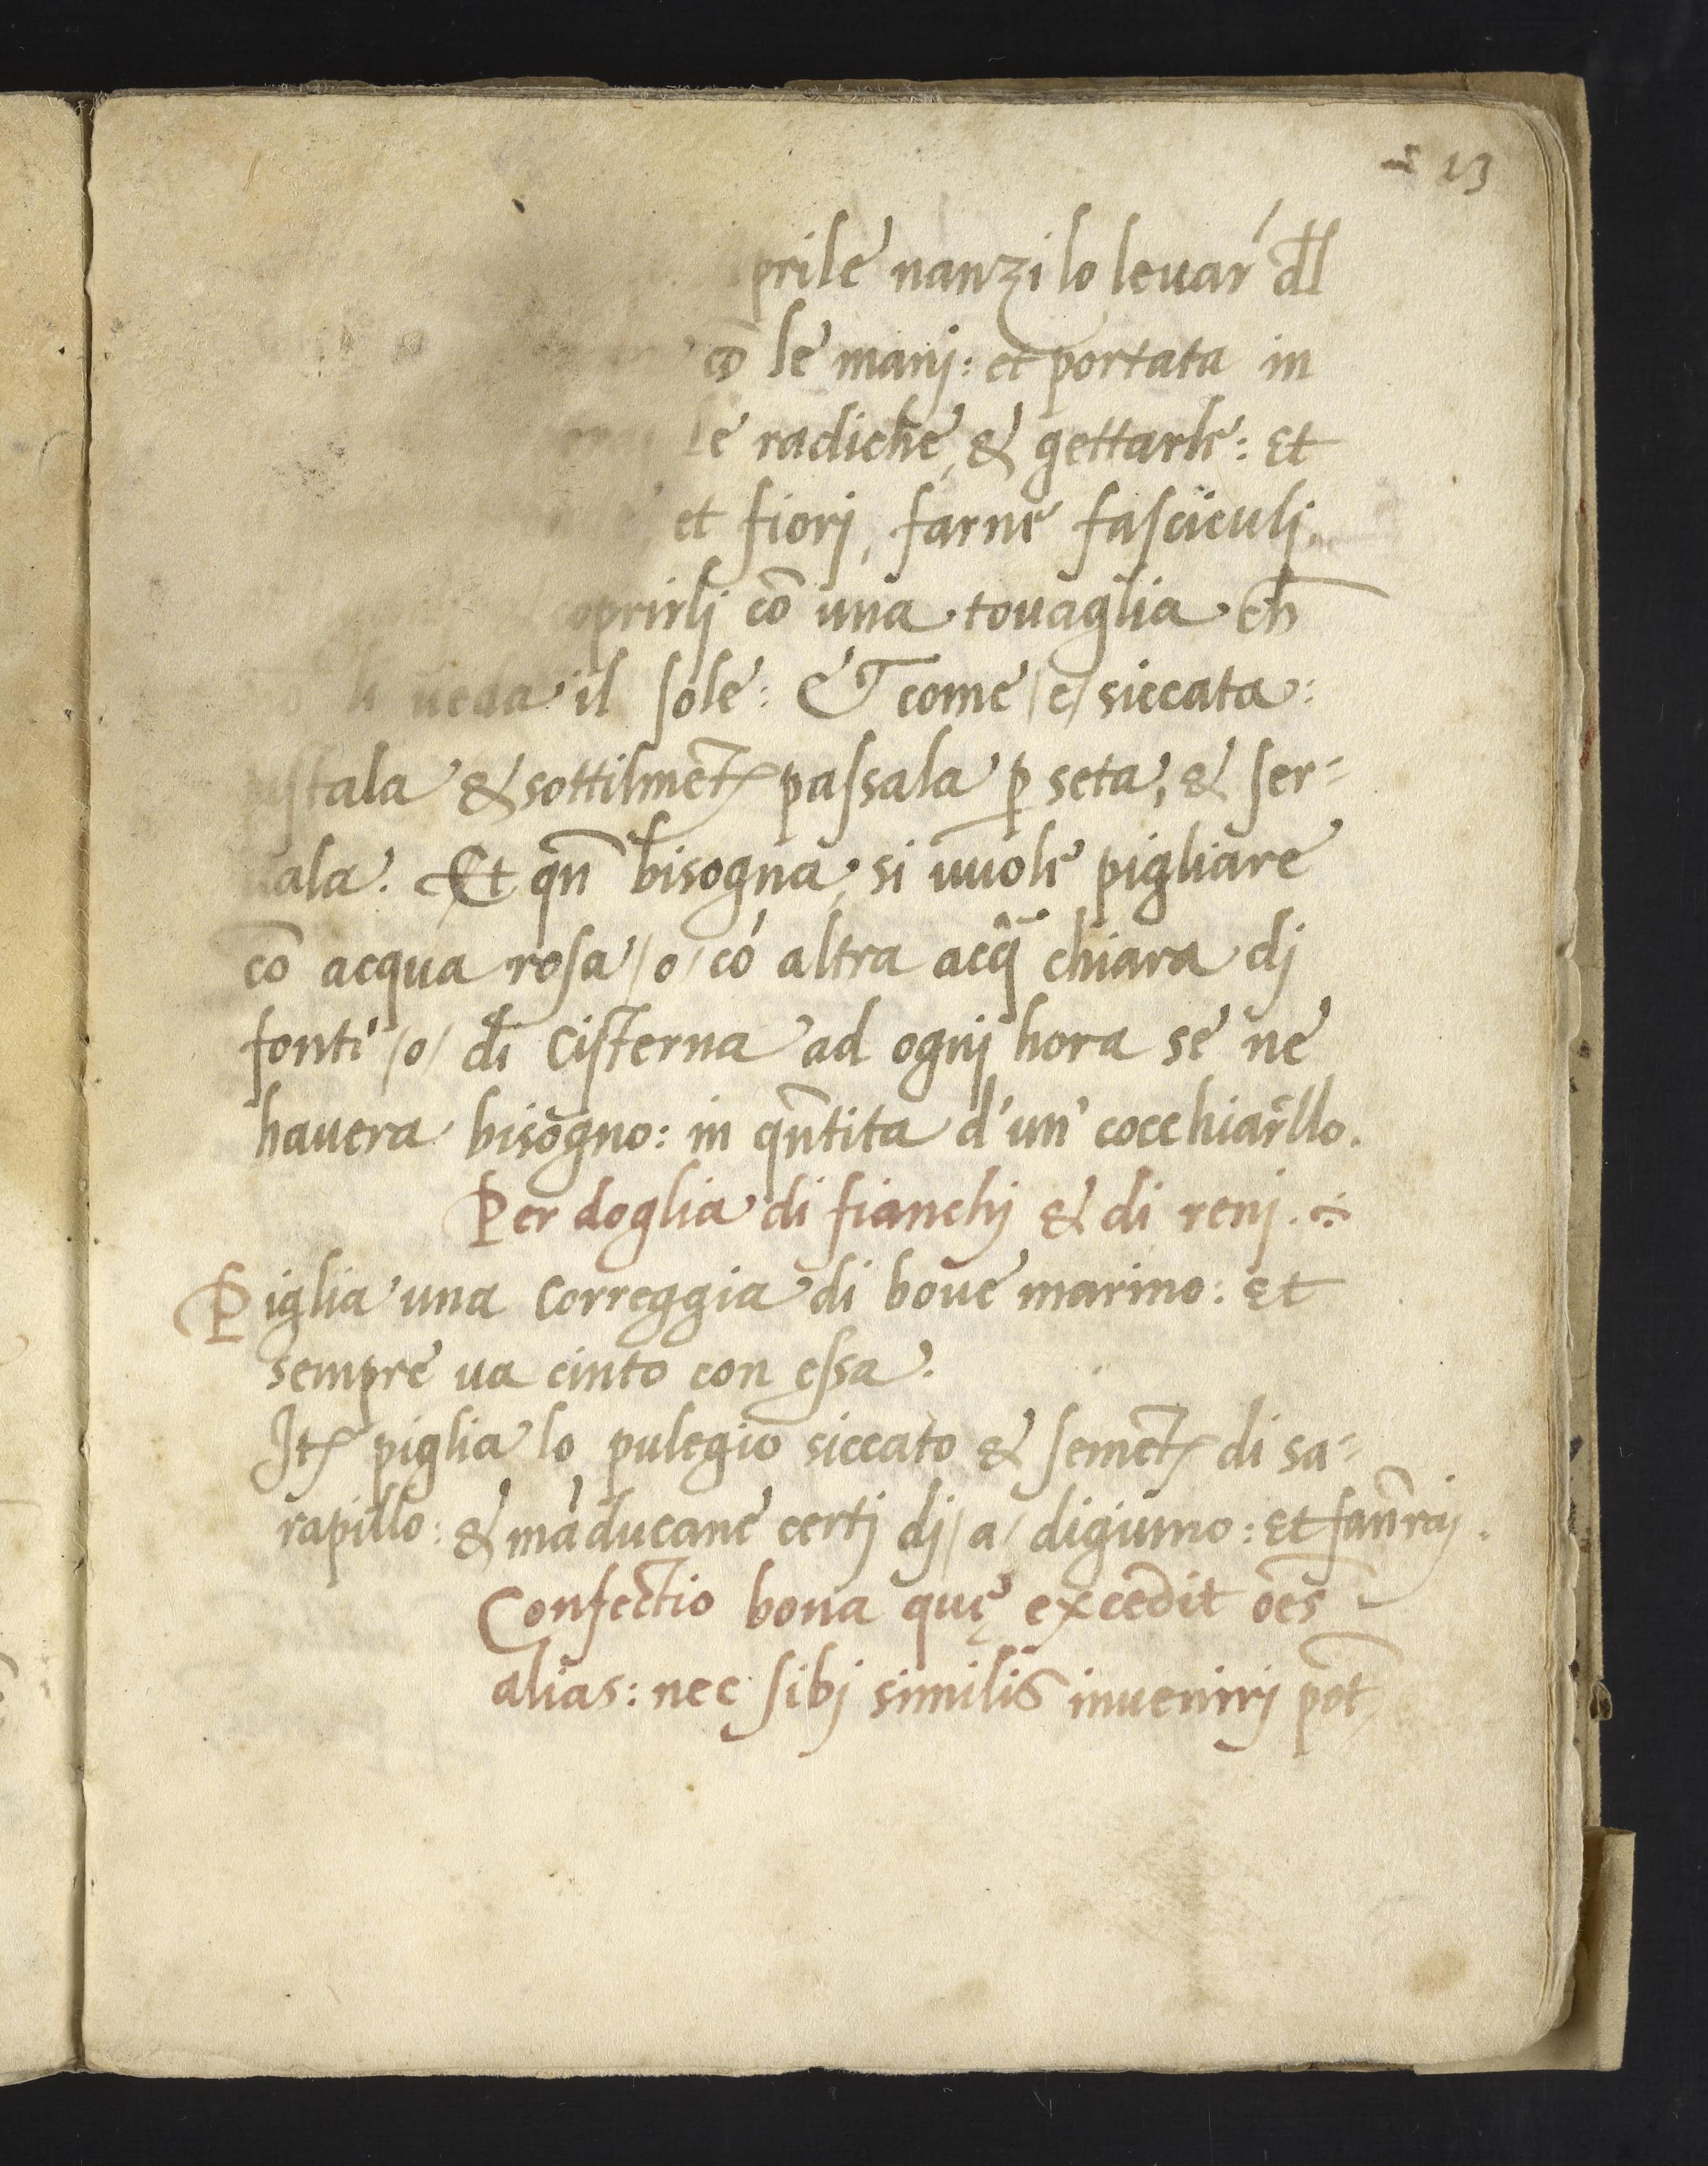 23
prile nanzi lo leuar dl
cō le manj: et portata in
le radiche, & gettarle: Et
et fiorj, farne fasciculj
oprirlj cō una touaglia ch
ueda il sole: Et come /e/ siccata:
istala & sottilmēt passala p seta, & ser-
uala. Et qn̄ bisogna; si uuole pigliare
cō acqua rosa /o/ cō altra acq̄ chiara dj
fonti /o/ di cisterna ad ognj hora se ne
hauera bisogno: in qn̄tita d'un cocchiarello.
Per doglia di fianchj & di renj.
Piglia una correggia di boue marino: Et
sempre ua cinto con essa.
Itē piglia lo pulegio siccato & semēt di sa-
rapillo: & māducane certj dj /a/ digiuno: Et
Confectio bona quę excedit ōes
alias: nec sibj similis inuenirj pōt